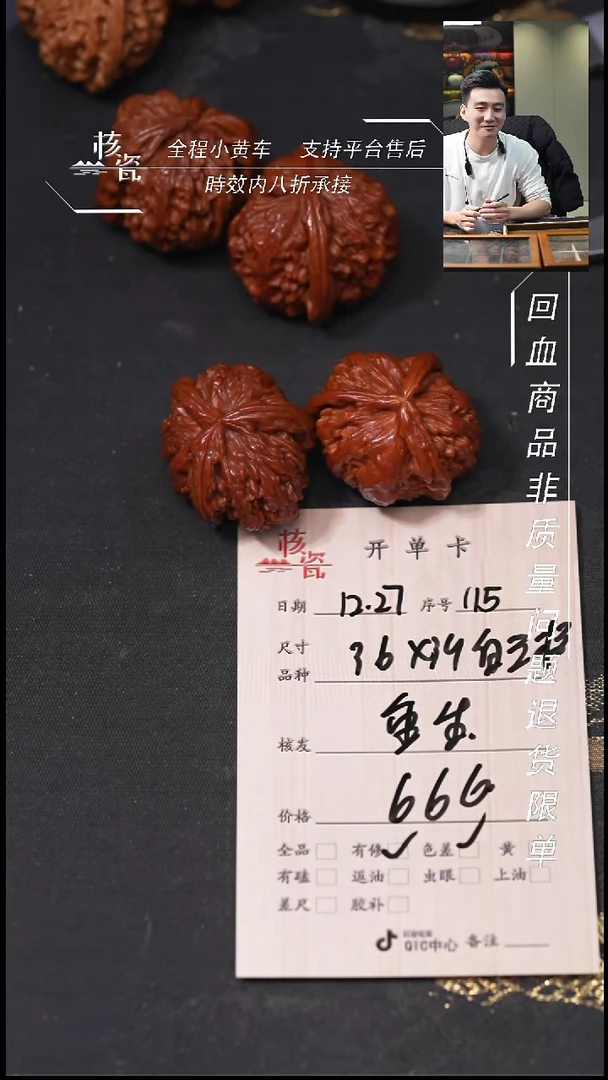 核瓷
全程小黄车 支持平台售后
時效内八折承接
回血商品非质量问题退货限单
核瓷 开单卡
日期 12.27 序号 115
尺寸
品种 36X34
核友
价格 666
全品 有修 ✓ 色差 ✓ 黄
有磕 返油 虫眼 上油
差尺 胶补
QIC中心 备注